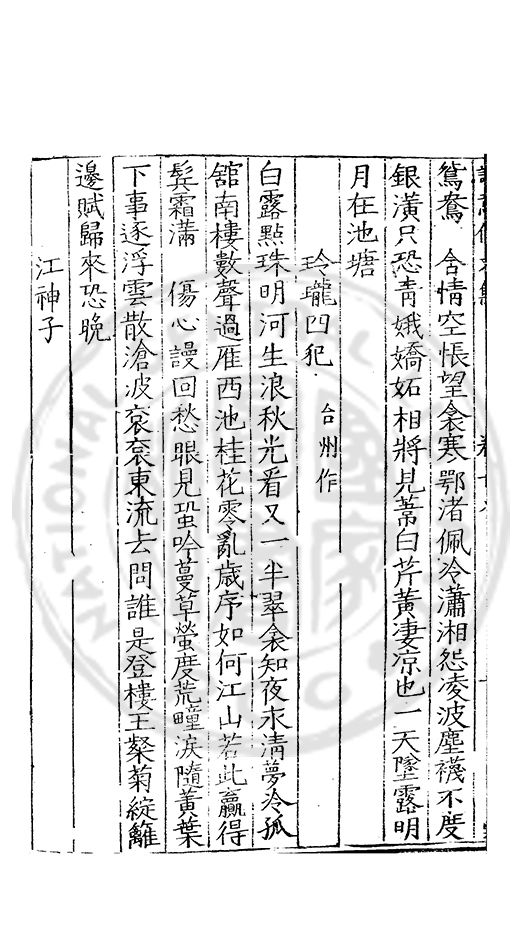 鴛鴦　含情空悵望衾寒鄂渚佩冷瀟湘怨凌波塵襪不度
銀潢只恐青娥嬌妬相將見蒂白芹黄凄凉也一天墜露明
月在池塘
玲瓏四犯　台州作
白露點珠明河生浪秋光看又一半翠衾知夜永清夢冷孤
舘南樓數聲過雁西池桂花零亂歳序如何江山若此贏得
鬂霜滿　傷心謾回愁眼見蛩吟蔓草螢度荒疃淚隨黄葉
下事逐浮雲散滄波衮衮東流去問誰是登樓王粲菊綻籬
邊賦歸來恐晚
江神子